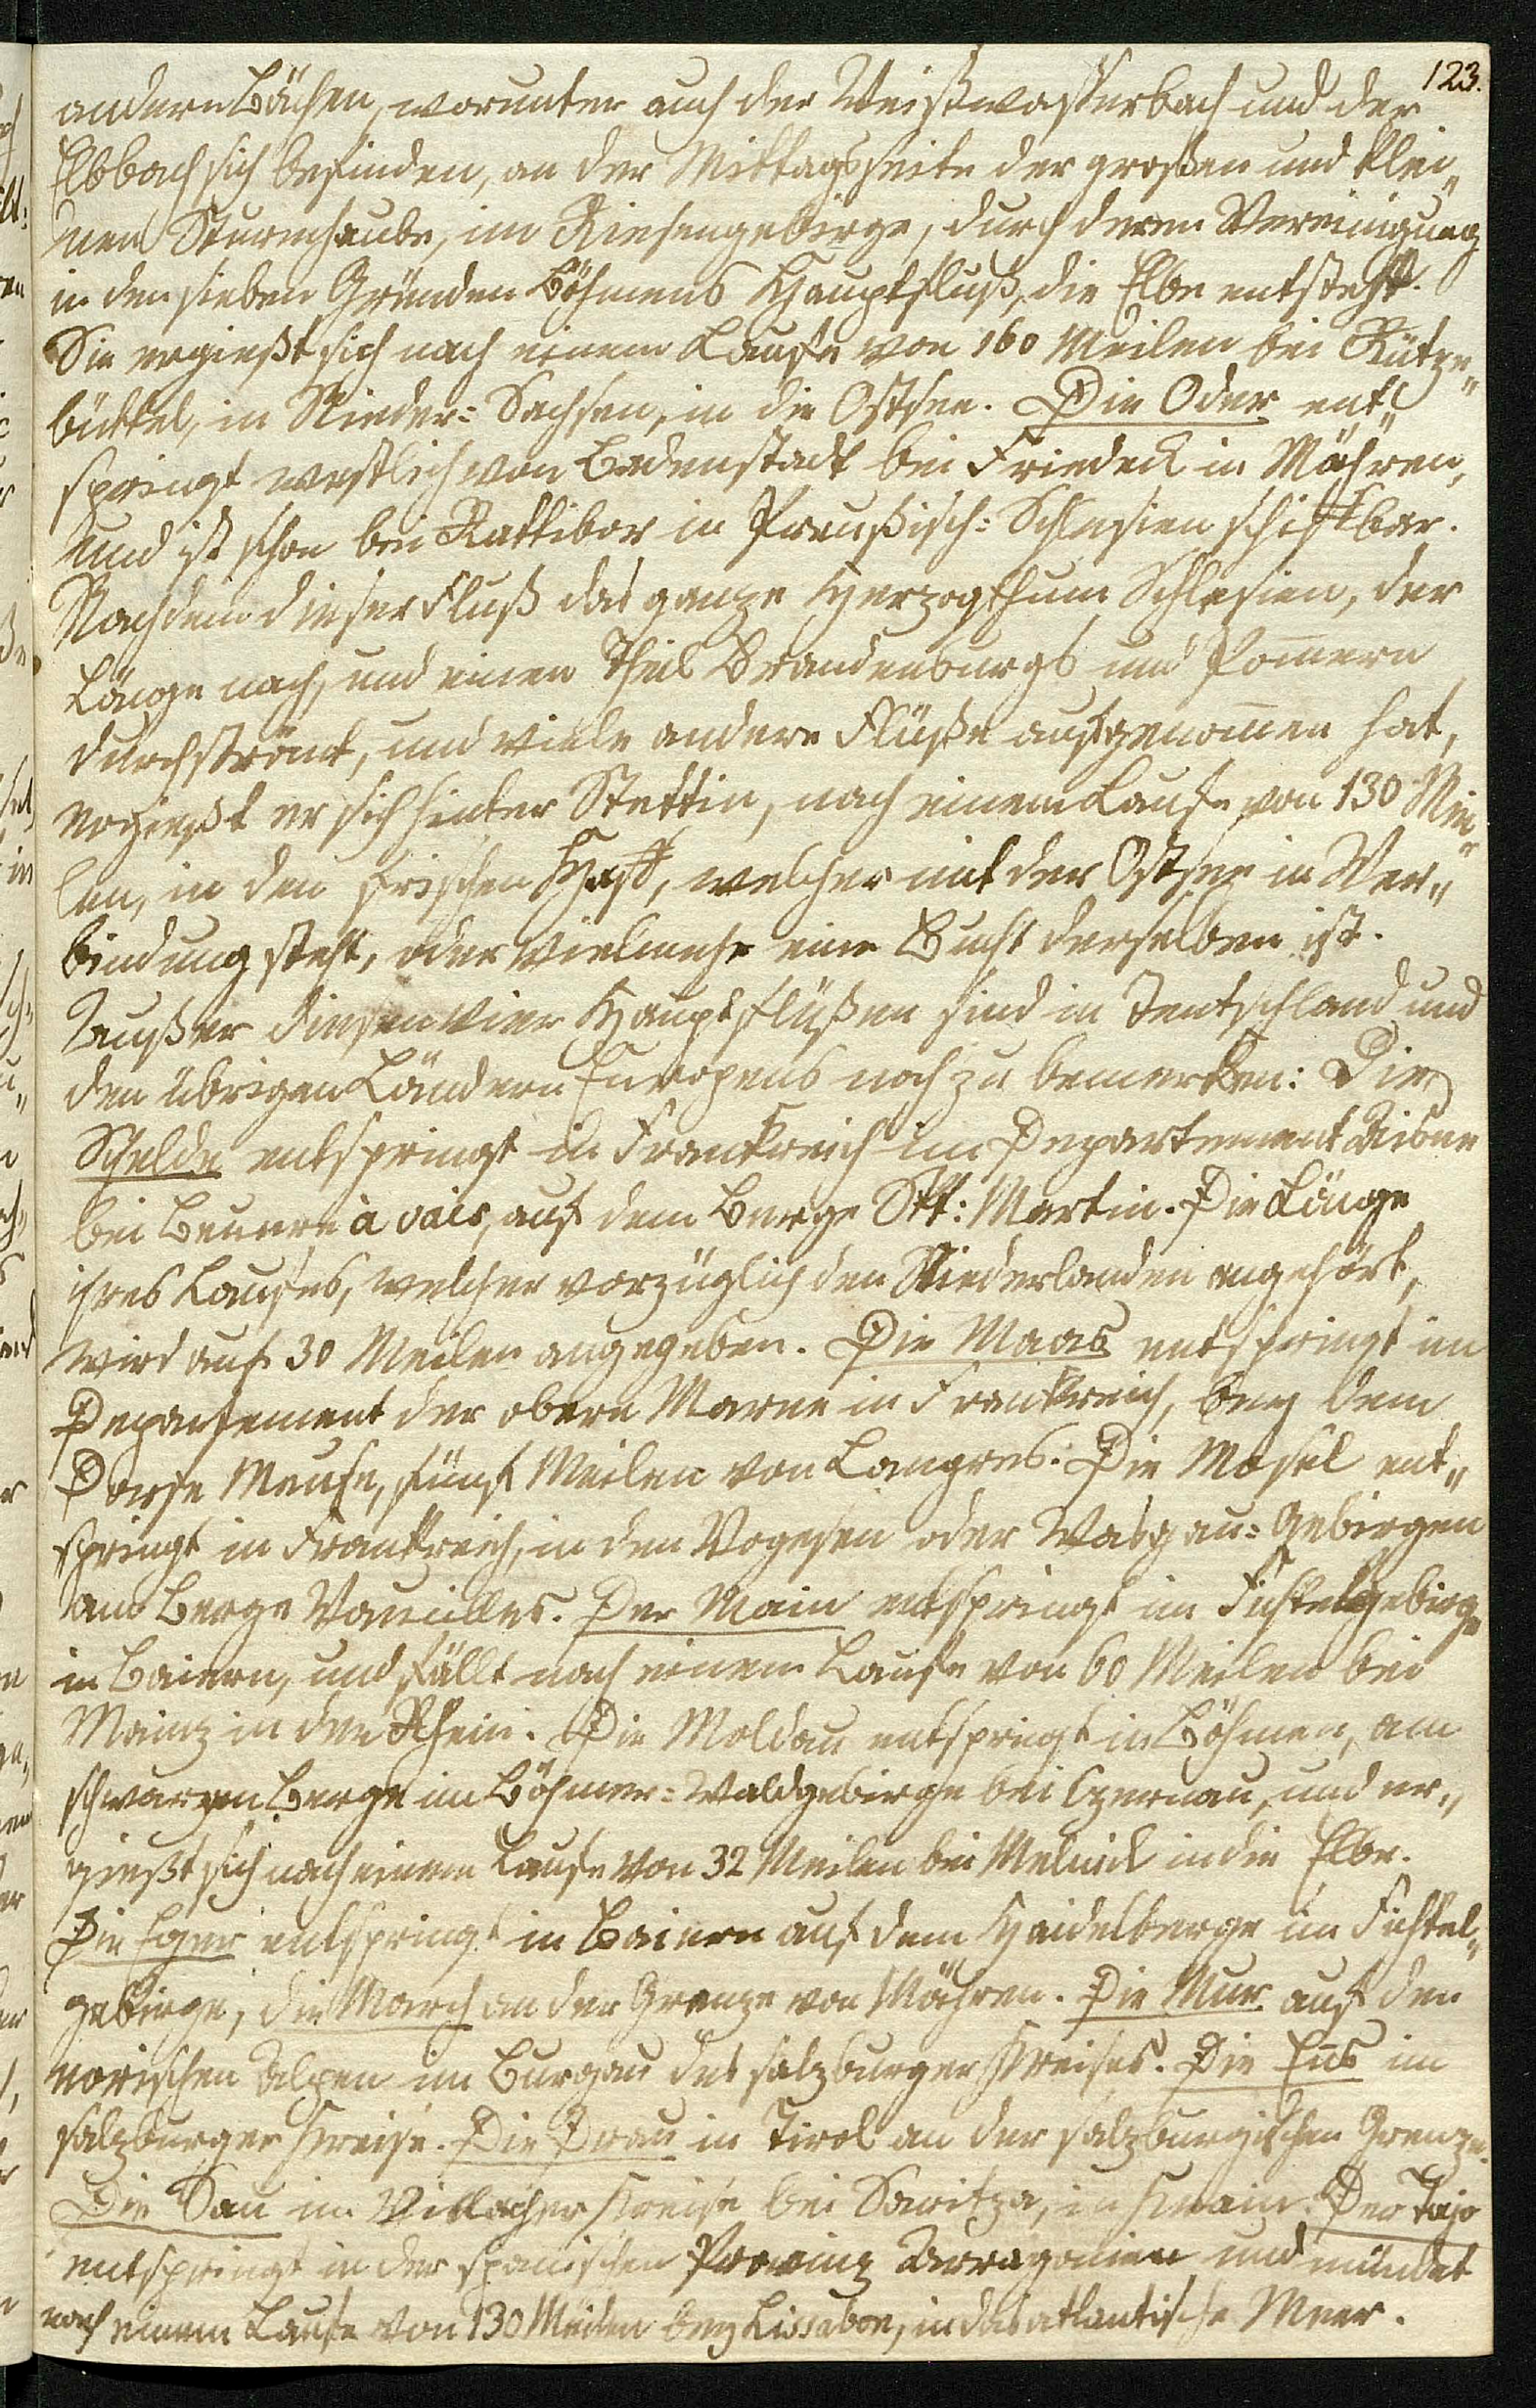 123.
andern Bächen, worunter auch der Weißwasserbach und der
Elbbach sich befinden, an der Mittagsseite der großen und klei„
nen Sturmhaube, im Riesengebirge, durch deren Vereinigung
in den sieben Gründen Böhmens Hauptfluß, die Elbe entsteht.
Sie ergießt sich nach einem Laufe von 160 Meilen bei Rütze„
büttel, in Nieder=Sachsen, in die Ostsee. Die Oder ent„
springt westlich von Bodenstadt bei Friedeck in Mähren,
und ist schon bei Rattibor in Preußisch=Schlesien schiffbar.
Nachdem dieser Fluß das ganze Herzogthum Schlesien, der
Länge nach, und einen Theil Brandenburgs und Pom̅ern
durchströmt, und viele andere Flüße aufgenom̅en hat,
ergießt er sich hinter Stettin, nach einem Laufe von 130 Mei„
len, in den frischen Haff, welcher mit der Ostsee in Ver„
bindung steht, oder vielmehr eine Bucht derselben ist.
Außer diesen vier Hauptflüßen sind in Teutschland und
den übrigen Ländern Europens noch zu bemerken: Die
Schelde entspringt in Frankreich im Departement Aisne
bei Beurre à vais, auf dem Berge Skt: Martin. Die Länge
ihres Laufes, welcher vorzüglich den Niederlanden angehört,
wird auf 30 Meilen angegeben. Die Maas entspringt im
Departement der obern Marne in Frankreich, bey dem
Dorfe Meuse, fünf Meilen von Langres. Die Mosel ent„
springt in Frankreich, in den Vogesen oder Wasgau=Gebirgen
am Berge Vauilles. Der Main entspringt im Fichtelgebirge
in Baiern, und fällt nach einem Laufe von 60 Meilen bei
Mainz in den Rhein. Die Moldau entspringt in Böhmen, am
schwarzen Berge im Böhmer=Waldgebirge bei Czernau, und er„
gießt sich nach einem Laufe von 32 Meilen bei Melnick in die Elbe.
Die Eger entspringt in Baiern auf dem Haidelberge im Fichtel„
gebirge, die March an der Grenze von Mähren. Die Mur auf den
norischen Alpen im Burgau des salzburger Kreises. Die En̅s im
salzburger Kreise. Die Drau in Tirol an der salzburgischen Grenze.
Die Sau im Villacher Kreise bei Savitza, in Krain. Der Tajo
entspringt in der spanischen Provinz Arragonien und mündet
nach einem Laufe von 130 Meilen bey Lissabon, in das atlantische Meer.